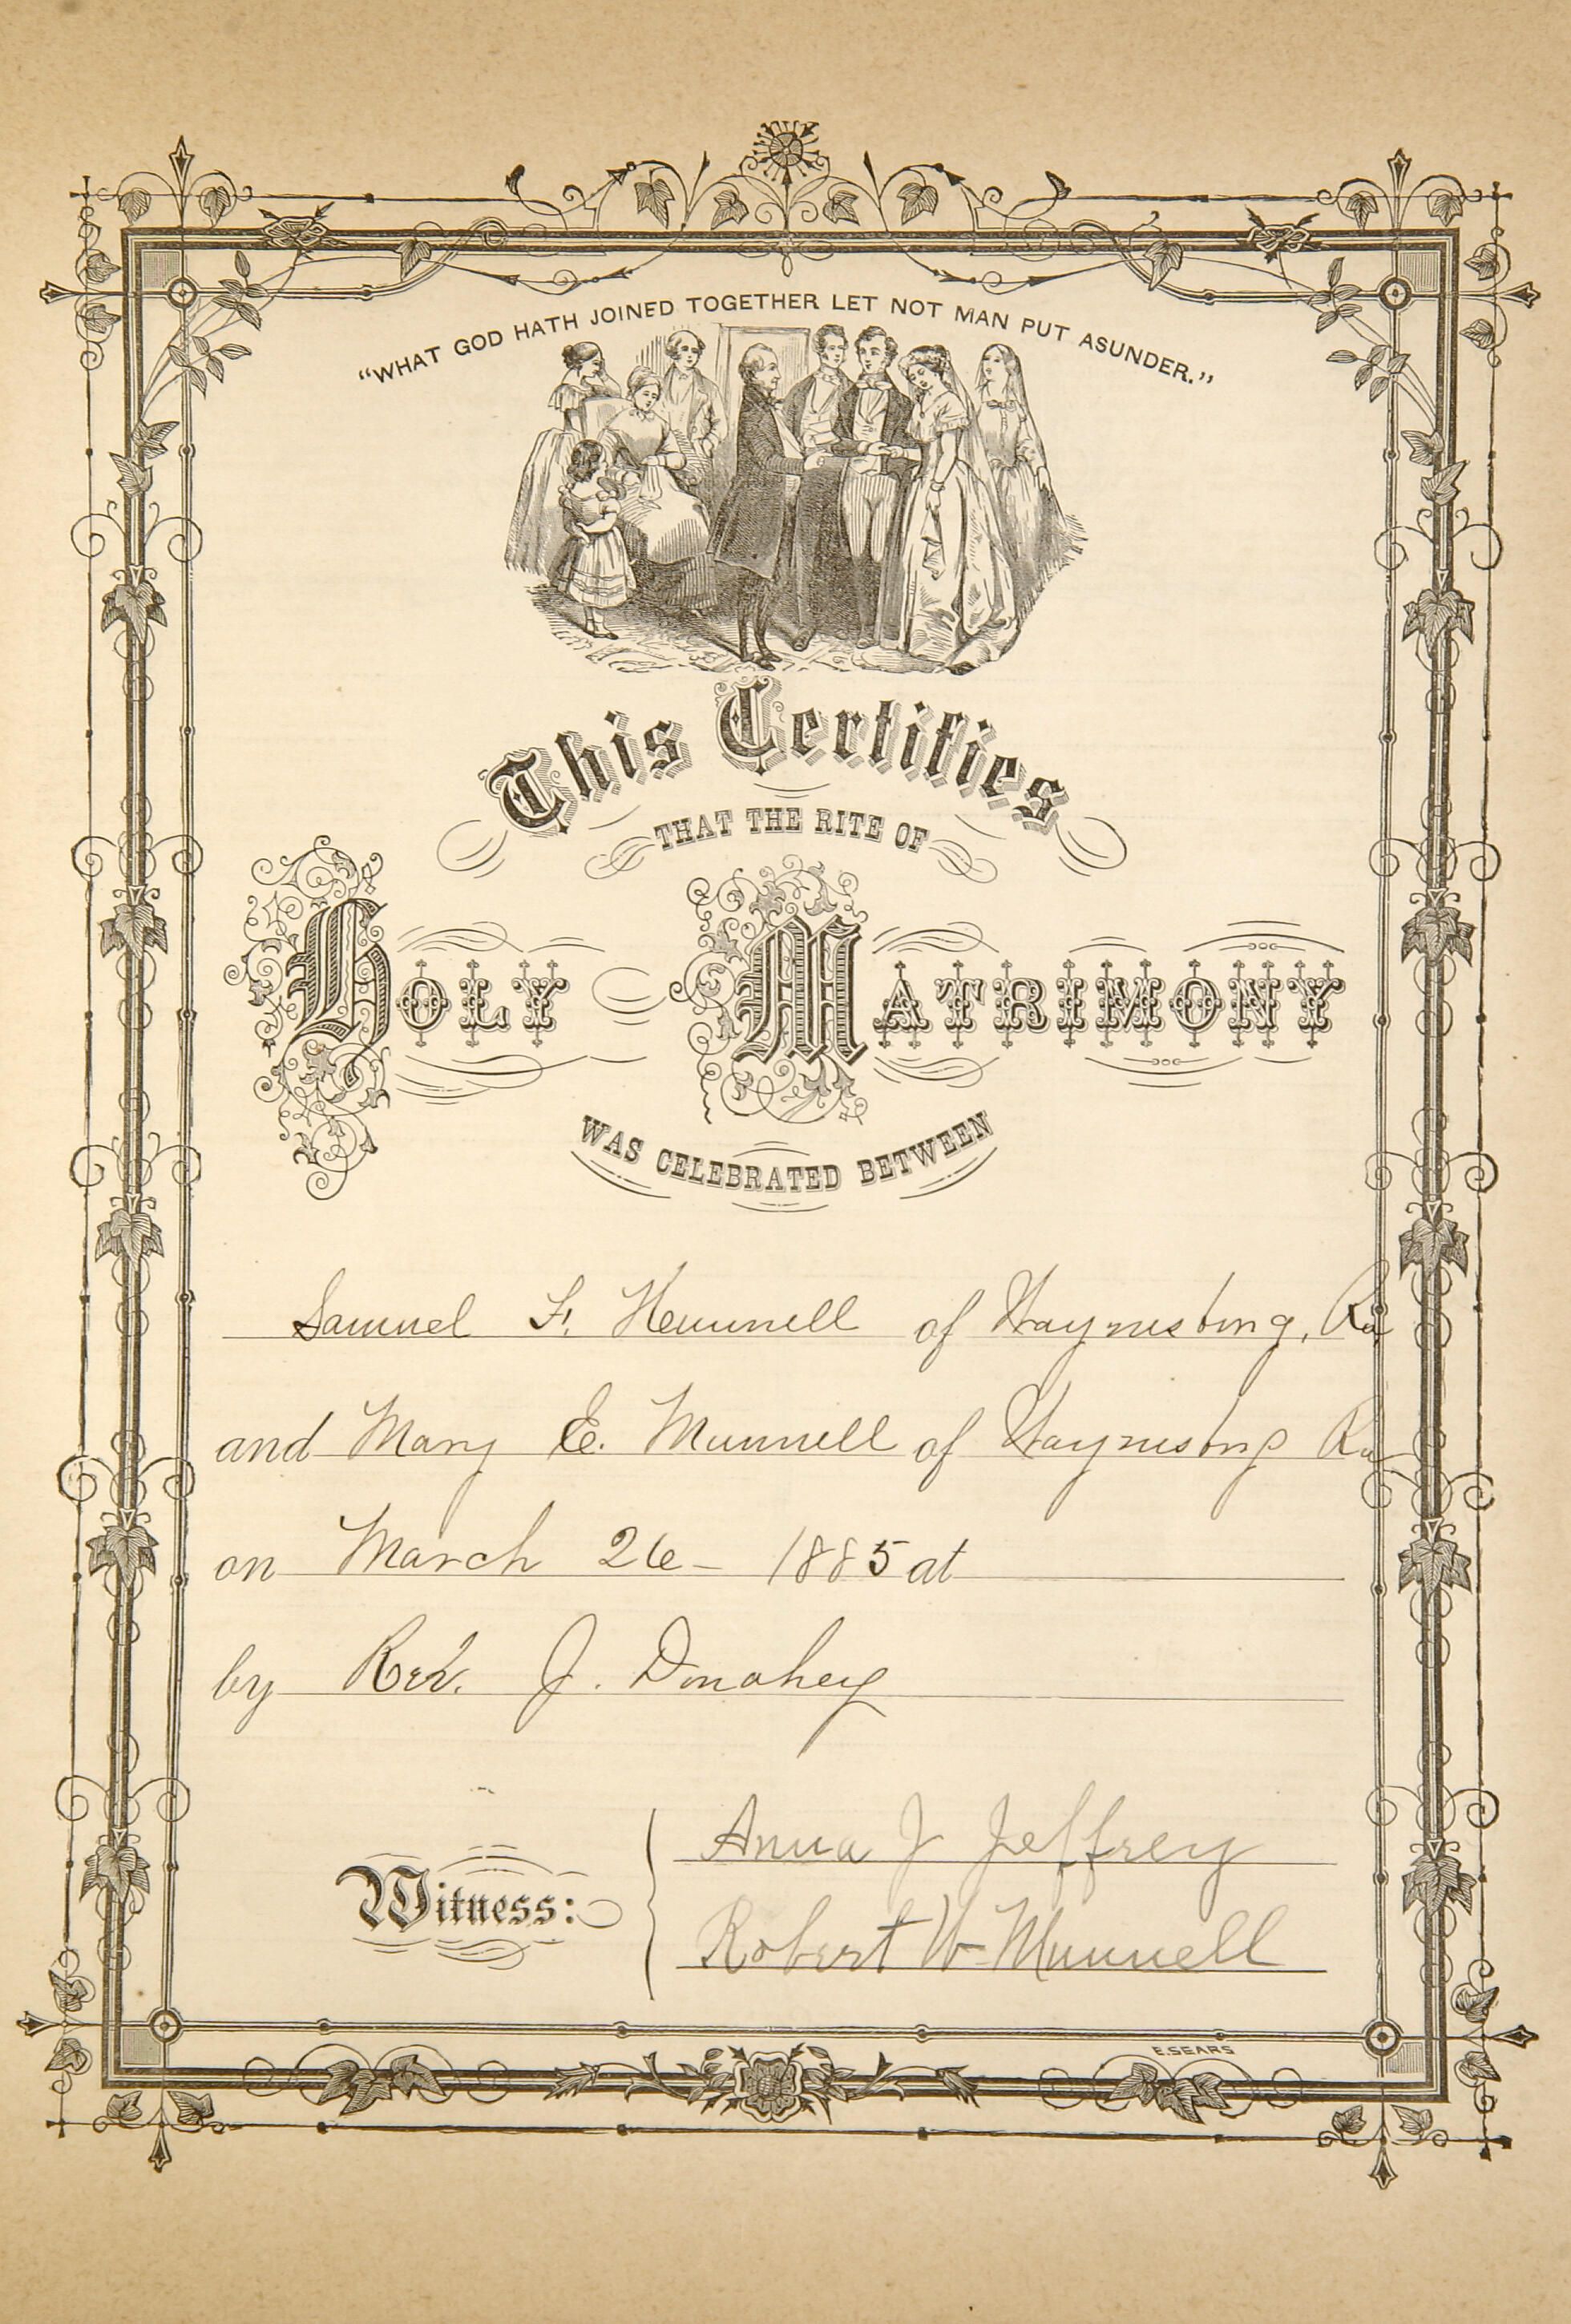 "WHAT GOD HATH JOINED TOGETHER LET NOT MAN PUT ASUNDER."
This Certifies
THAT THE RITE OF
HOLY MATRIMONY
WAS CELEBRATED BETWEEN
Samuel F. of Waynesburg, Pa
and Mary E. Munnell of Waynesburg Pa
on March 26 - 1885 at
by Rev. J. Donahey
Witness:
Anna J Jeffrey
Robert W Munnell
E.SEARS